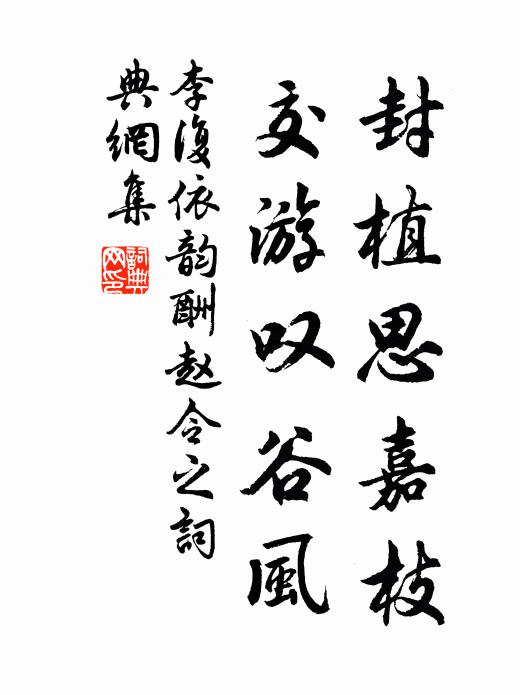 封植思嘉枝
交游叹谷風
李復依韵酬赵令之詞
典網集
詞典
网印